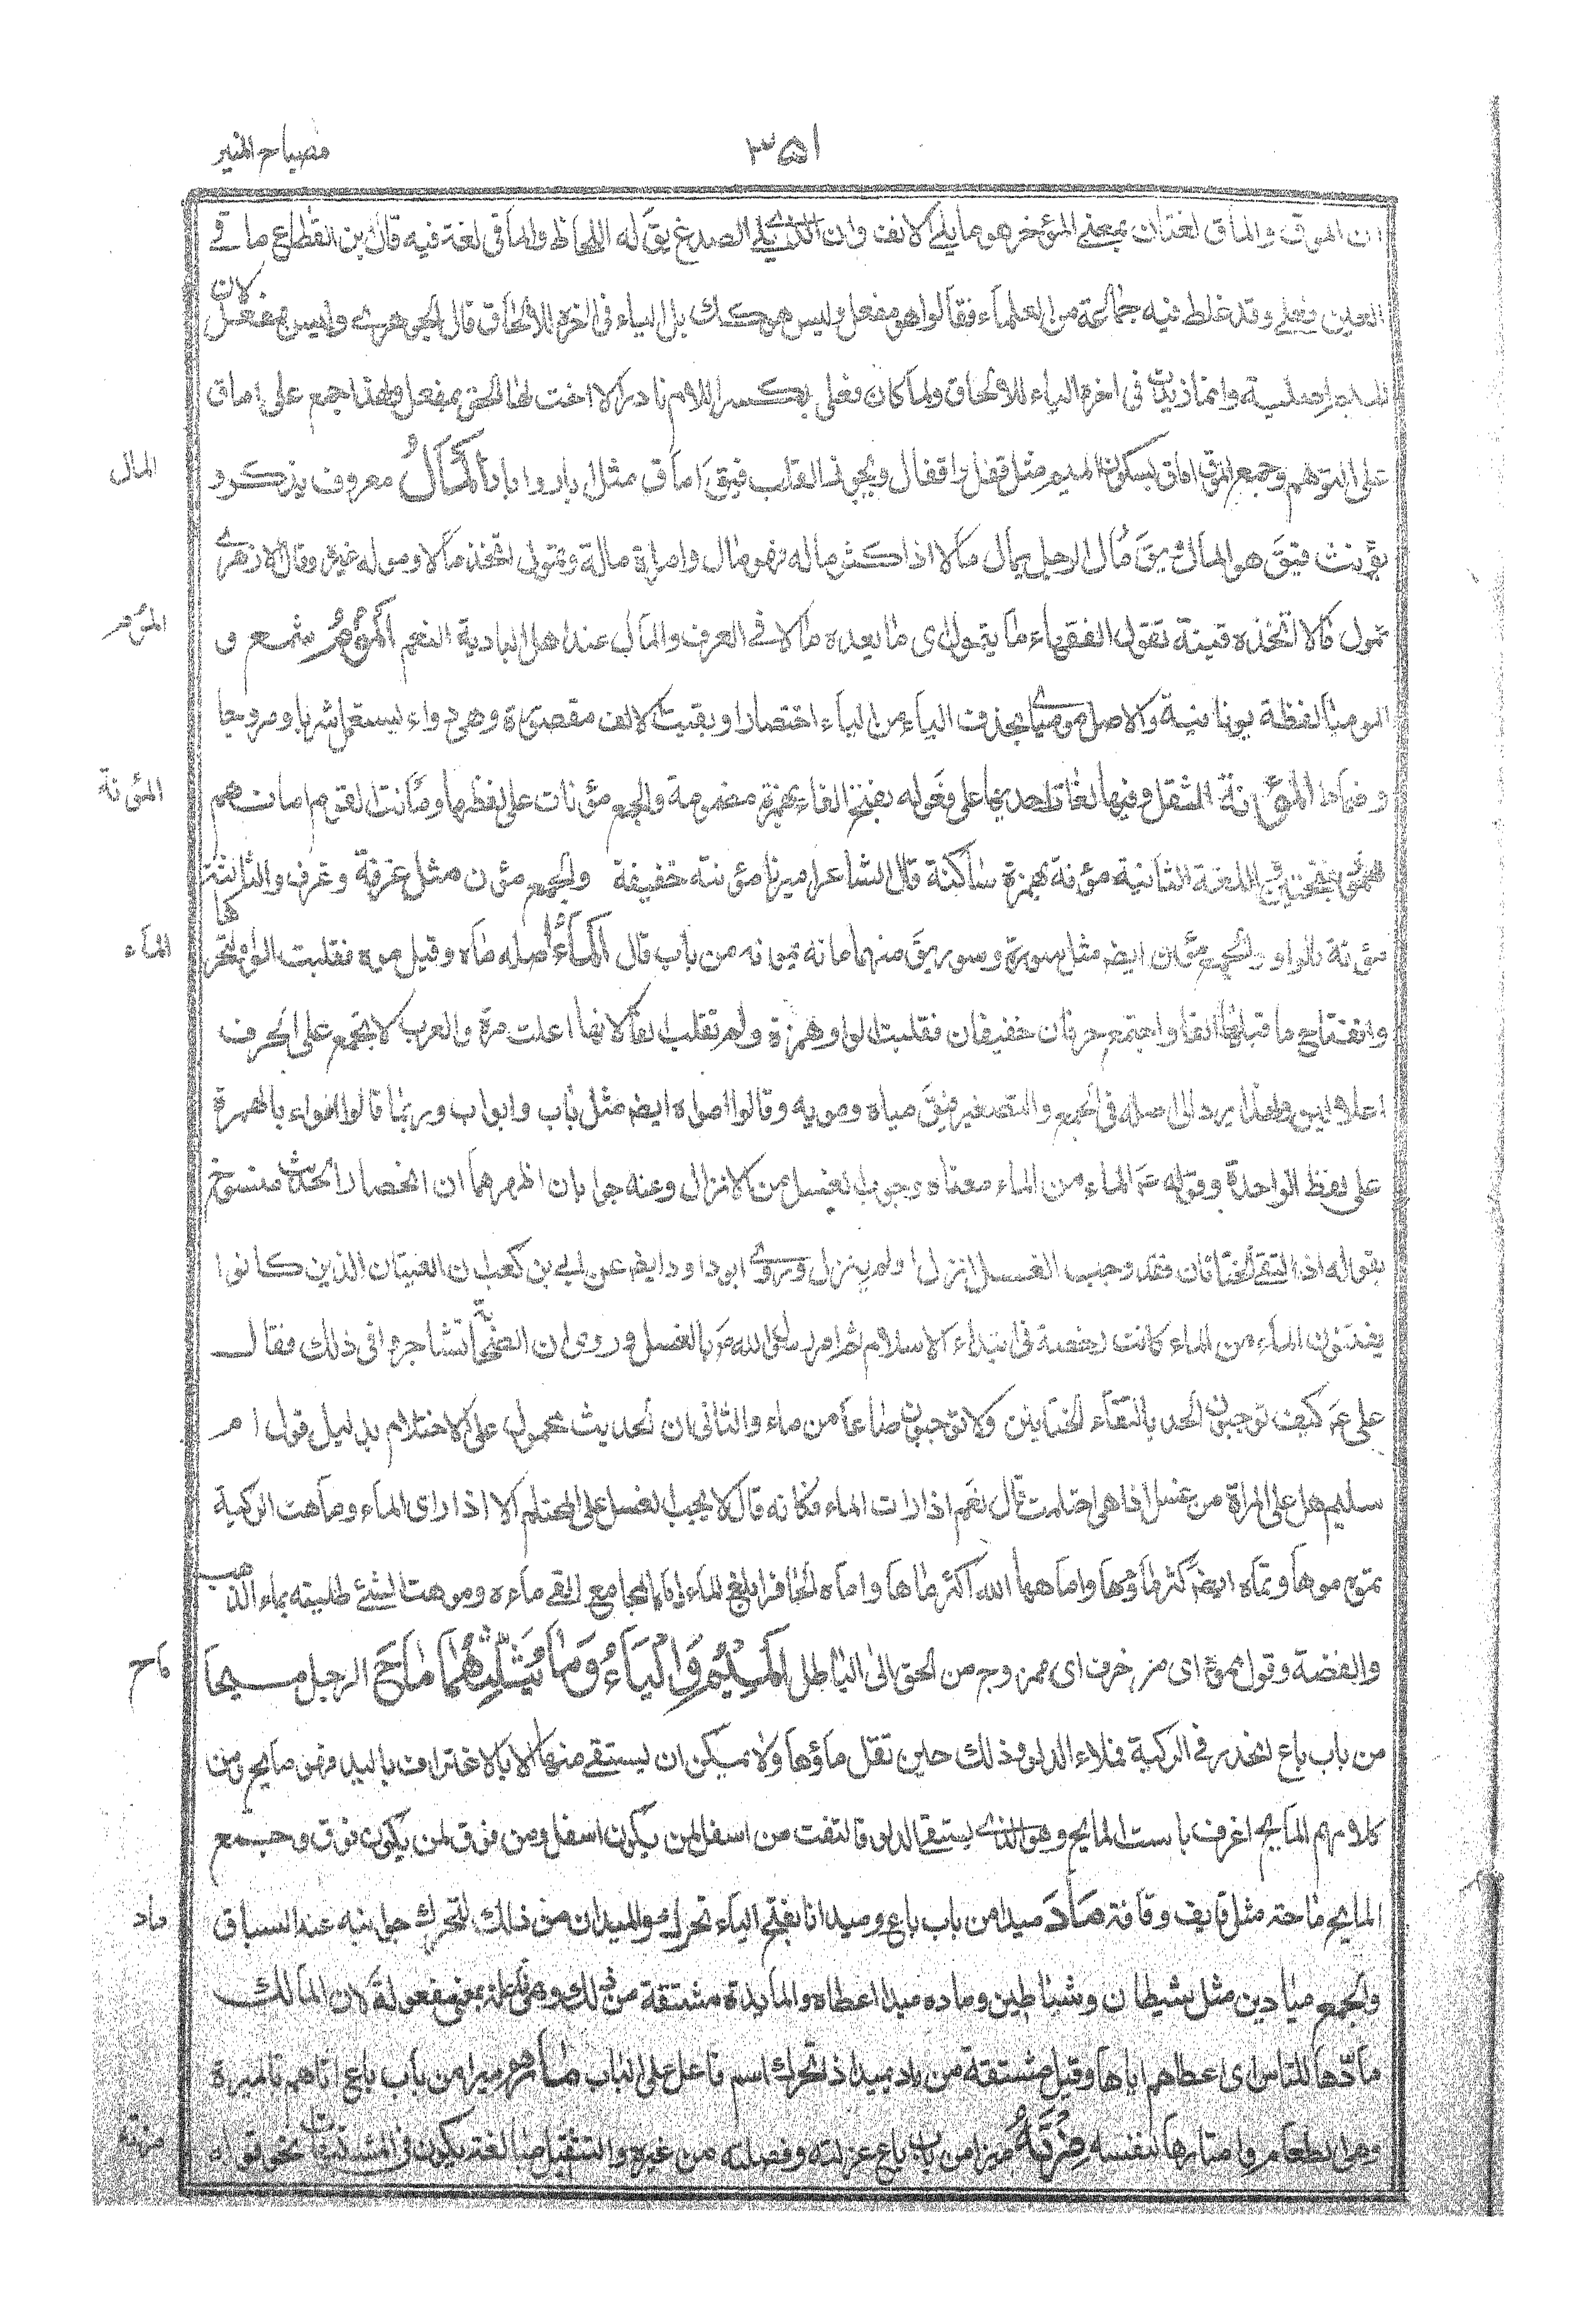 مصباح المنیر
۳۵۱
ان الموق والماق لغتان بمعنی المؤخر هو ما یلی الانف وان الذی یلی الصدغ یقَ له اللحاظ والمأقی لغة فیه قال بن القطاع ماقی
العین فعلی وقد غلط فیه جماعة من العلماء فقالوا هو مفعل ولیس هو کک بل الیاء فی اخره للالحاق قال الجوهری ولیس بمفعل لان
المیم اصلیة وانما زیدت فی اخره الیاء للالحاق ولما کان فعلی بکسر اللام نادرا لا اخت لها الحق بمفعل ولهذا جمع علی اماق
علی التوهم وجمع الموق اماق بسکون المیم مثل قفل واقفال ویجوز القلب فیقَ اماق مثل ابار واباد المَالُ معروف یذکر و
یؤنث فیقَ هو المال یقَ مال الرجل یمال مالا اذا کثر ماله فهو مال وامراة مالة وتمول اتخذ مالا وموله غیره وقال الازهری
تمول مالا اتخذه قنیة فقول الفقهاء ما یتمول ای ما یعده مالا فی العرف والمال عند اهل البادیة النعم المُؤمُ مشمع و
المومیا لفظة یونانیة والاصل مومیای بحذف الیاء من الیاء اختصارا وبقیت الالف مقصورة وهی دواء یستعمل شربا ومروخا
وضمادا المؤنة الثقل وفیها لغات احدیها علی فعوله بفتح الفاء بهمزة مضمومة والجمع مؤنات علی لفظها ومأنت القوم امانهم
مهموز بفتحتین واللغة الثانیة مؤنة بهمزة ساکنة قال الشاعر امیرنا مؤنته خفیفة والجمع مؤن مثل غرفة وغرف والثالثة
مونة بالواو والجمع مون ایضَ مثل سورة وسور یقَ منها مانه یمونه من باب قال المَاءُ اصله ماه وقیل موه فقلبت الواو لتحرکها
وانفتاح ما قبلها الفا واجتمع حرفان خفیفان فقلبت الهاء همزة ولم تقلب الفا لانها اعلت مرة والعرب لا تجمع علی الحرف
اعلالین ولهذا یرد الی اصله فی الجمع والتصغیر فیقَ میاه ومویه وقالوا امواه ایضَ مثل باب وابواب وربما قالوا امواء بالهمزة
علی لفظ الواحدة وقوله عَ الماء من الماء معناه وجوب الغسل من الانزال وعنه جوابان اظهرهما ان الحدیث منسوخ
بقوله اذا التقی الختانان فقد وجب الغسل انزل او لم ینزل وروی ابو داود ایضَ عن ابی بن کعب ان الفتیان الذین کانوا
یفتون الماء من الماء کانت رخصة فی ابتداء الاسلام ثم امر رسول الله ص بالغسل وروی ان الصحابة تشاجروا فی ذلک فقال
علی عَ کیف توجبون الحد بالتقاء الختانین ولا توجبون صاعا من ماء والثانی ان الحدیث محمول علی الاحتلام بدلیل قول ام
سلیم هل علی المراة من غسل اذا هی احتلمت قال نعم اذا رات الماء وکانه قال لا یجب الغسل علی المحتلم الا اذا رای الماء وماهت الرکیة
تموه موها وتماه ایضَ کثر ماؤها واماهها الله اکثر ماءها واماه الحافر ابلغ الماء واماه المجامع القی ماءه وموهت الشئ طلیته بماء الذهب
والفضة وقول مموه ای مزخرف ای ممزوج من الحق الی الباطل المیم والیاء وما یثلثهما ماحَ الرجل میحا
من باب باع انحدر فی الرکیة فملاء الدلو وذلک حین تقل ماؤها ولا یمکن ان یستقی منها الا بالاغتراف بالید فهو مایح ومن
کلامهم المایح اعرف باست الماتح وهو الذی یستقی الدلو فالتفت من اسفل لمن یکون اسفل ومن فوق لمن یکون فوق وجمع
المایح ماحة مثل قایف وقافة مَادَ میدا من باب باع ومیدانا بفتح الیاء تحرک والمیدان من ذلک لتحرک جوانبه عند السباق
والجمع میادین مثل شیطان وشیاطین وماده میدا اعطاه والمایدة مشتقة من ذلک وهی فاعلة بمعنی مفعولة لان المالک
مادها للناس ای اعطاهم ایاها وقیل مشتقة من ماد یمید اذا تحرک اسم فاعل علی الباب مَارهم میرا من باب باع اتاهم بالمیرة
وهی الطعام وامتارها لنفسه مِزتُهُ میزا من باب باع عزلته وفصلته من غیره والتثقیل مبالغة یکون فی المشتبهات نحو قوله
المال
الموم
المؤنة
الماء
ماح
ماد
مزته